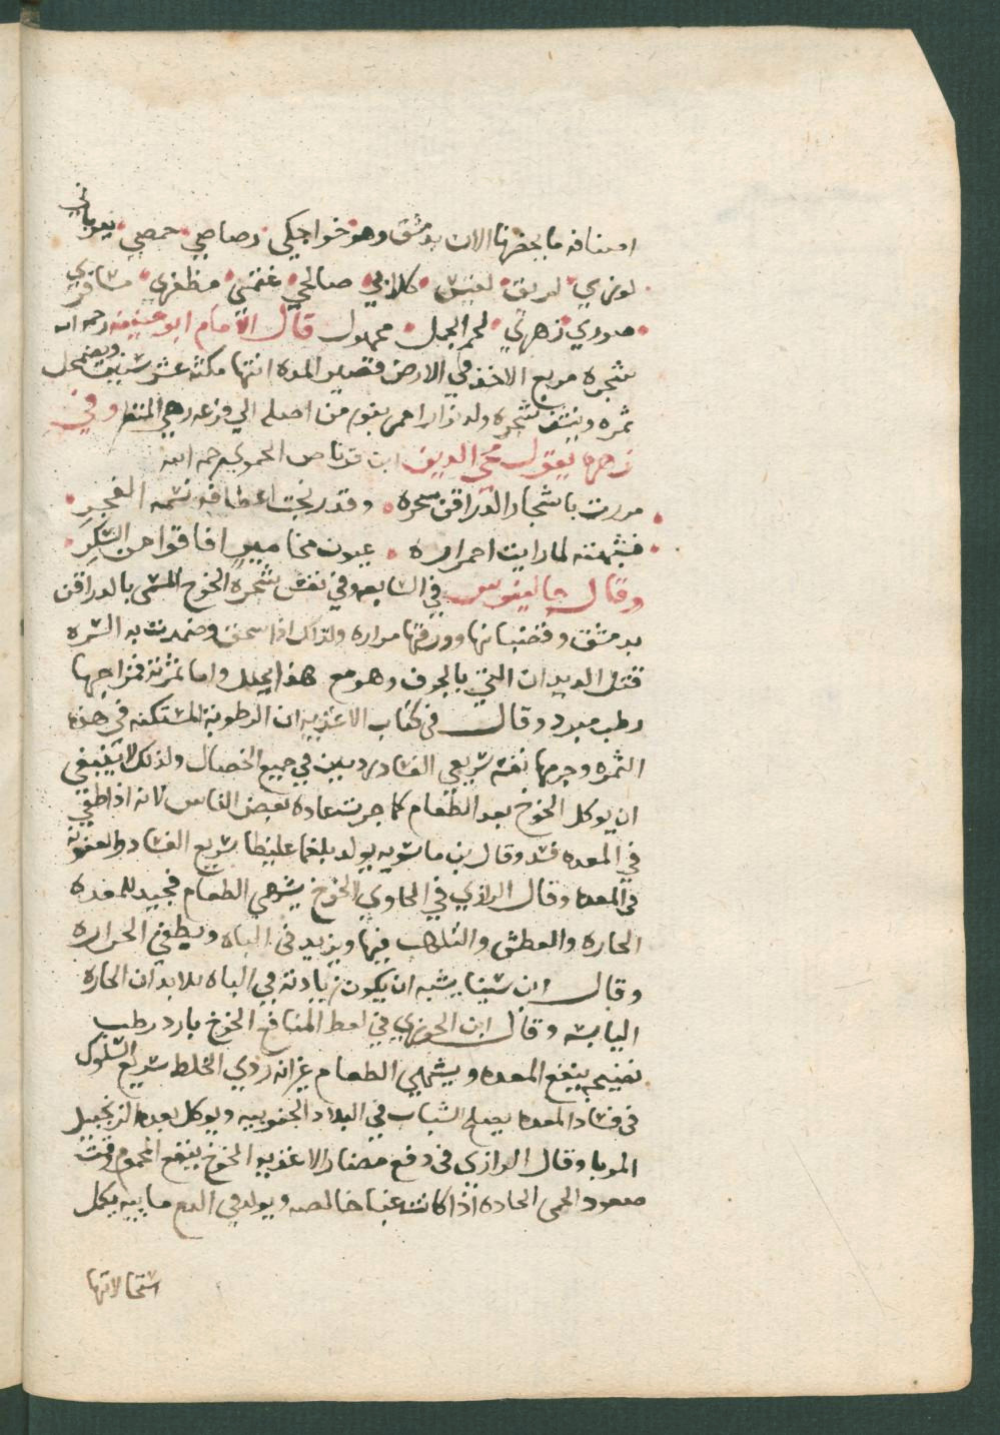 اصنافه ما يحضرنا الان بدمشق وهو خواجكي رصاصي حمصي
لوزي كلابي صالحي غنمي مظفري
صوري زهري لحم الجمل قال الامام ابو حنيفه رحمه الله
شجره مربع الاخذ في الارض قصير المده انتها مكثه عشر سنين ويضمحل
ثمره وينشف شجره وله نوار احمر يقوم من اصله الي فرعه وفي
زهره يقول محي الدين ابن قرناص الحموي رحمه الله
مررت باشجار الدراقن سحرة وقد رنحت اعطافه نسمة الفجر
فشبهته لما رايت احمراره عيون مخامير افاقوا من السكر
وقال جالينوس في السابعه وفي نفس شجره الخوخ المسمى بالدراقن
بدمشق وقضبانها وورقها مراره ولذلك اذا سحق وضمدت به السره
قتل الديدان التي بالجوف وهو مع هذا يحلل واما ثمرته فمزاجها
رطب مبرد وقال في كتاب الاغذيه ان الرطوبة المستكنه في هذه
الثمره وجرمها نفسه سريعي الفساد رديين في جميع الخصال ولذلك لا ينبغي
ان يوكل الخوخ بعد الطعام كما جرت عاده بعض الناس لانه اذا طفي
في المعده فسد وقال بن ماسويه يولد بلغما غليظا سريع الفساد والعفونه
في المعده وقال الرازي في الحاوي الخوخ يشهي الطعام فجيد للمعده
الحاره والعطش والتلهب فيها ويزيد في الباه ويطفي الحراره
وقال ابن سينا يشبه ان يكون زيادته في الباه للابدان الحاره
اليابسه وقال ابن الجوزي في لقط المنافع الخوخ بارد رطب
نضيجه ينفع المعده ويشهي الطعام غير انه ردي الخلط سريع السلوك
في فساد المعده يصلح الشباب في البلاد الجنوبيه ويوكل بعده الزنجبيل
المربا وقال الرازي في دفع مضار الاغذيه الخوخ ينفع المحموم وقت
صعود الحمى الحاده اذا كانت غبا خالصه ويولد في الدم مايه يكمل
استحالاتها